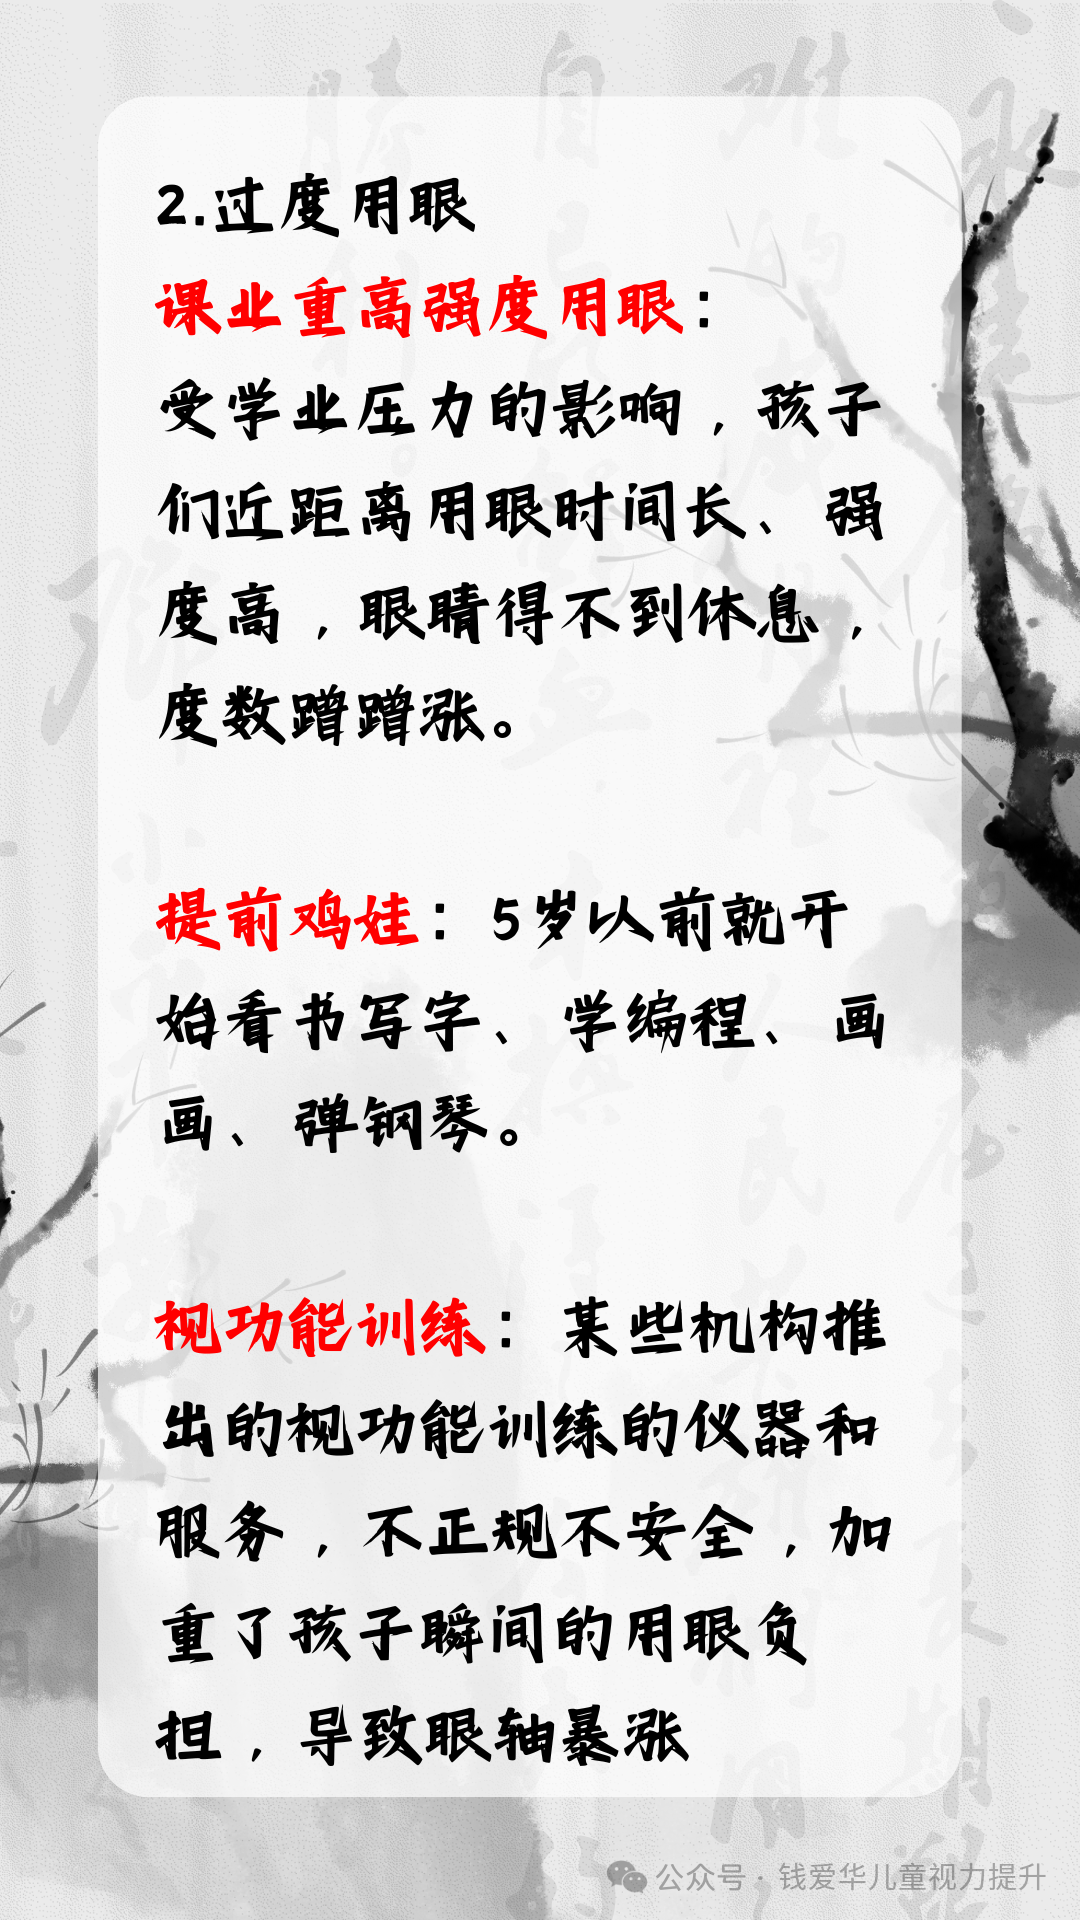 2.过度用眼
课业重高强度用眼：
受学业压力的影响，孩子
们近距离用眼时间长、强
度高，眼睛得不到休息，
度数蹭蹭涨。
提前鸡娃：5岁以前就开
始看书写字、学编程、画
画、弹钢琴。
视功能训练：某些机构推
出的视功能训练的仪器和
服务，不正规不安全，加
重了孩子瞬间的用眼负
担，导致眼轴暴涨
公众号·钱爱华儿童视力提升